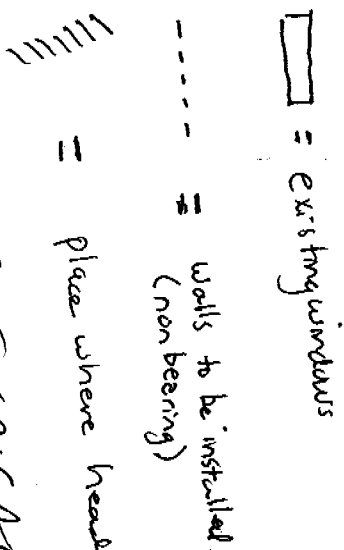 = existing windows
= walls to be installed
(non bearing)
= place where head